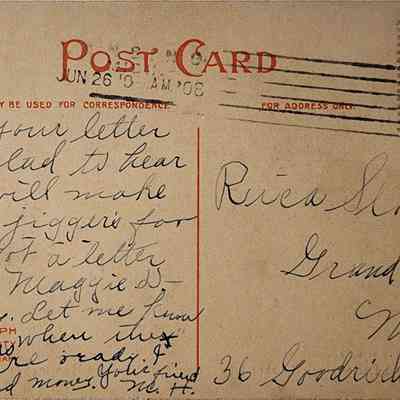 POST CARD
JUN 26 '0 AM '06
Y BE USED FOR CORRESPONDENCE.
FOR ADDRESS ONLY.
your letter
lad to hear
will make
jiggers for
ot a letter
Maggie D-
Let me know
when they
re ready. I
d money. Your friend
M. H.
PH
Grand
36